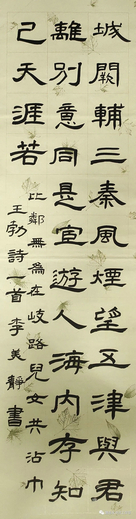 城闕輔三秦風煙望五津與君
離別意同是宦遊人海内存知
己天涯若
比鄰無為在歧路兒女共沾巾
王勃詩一首李美靜書